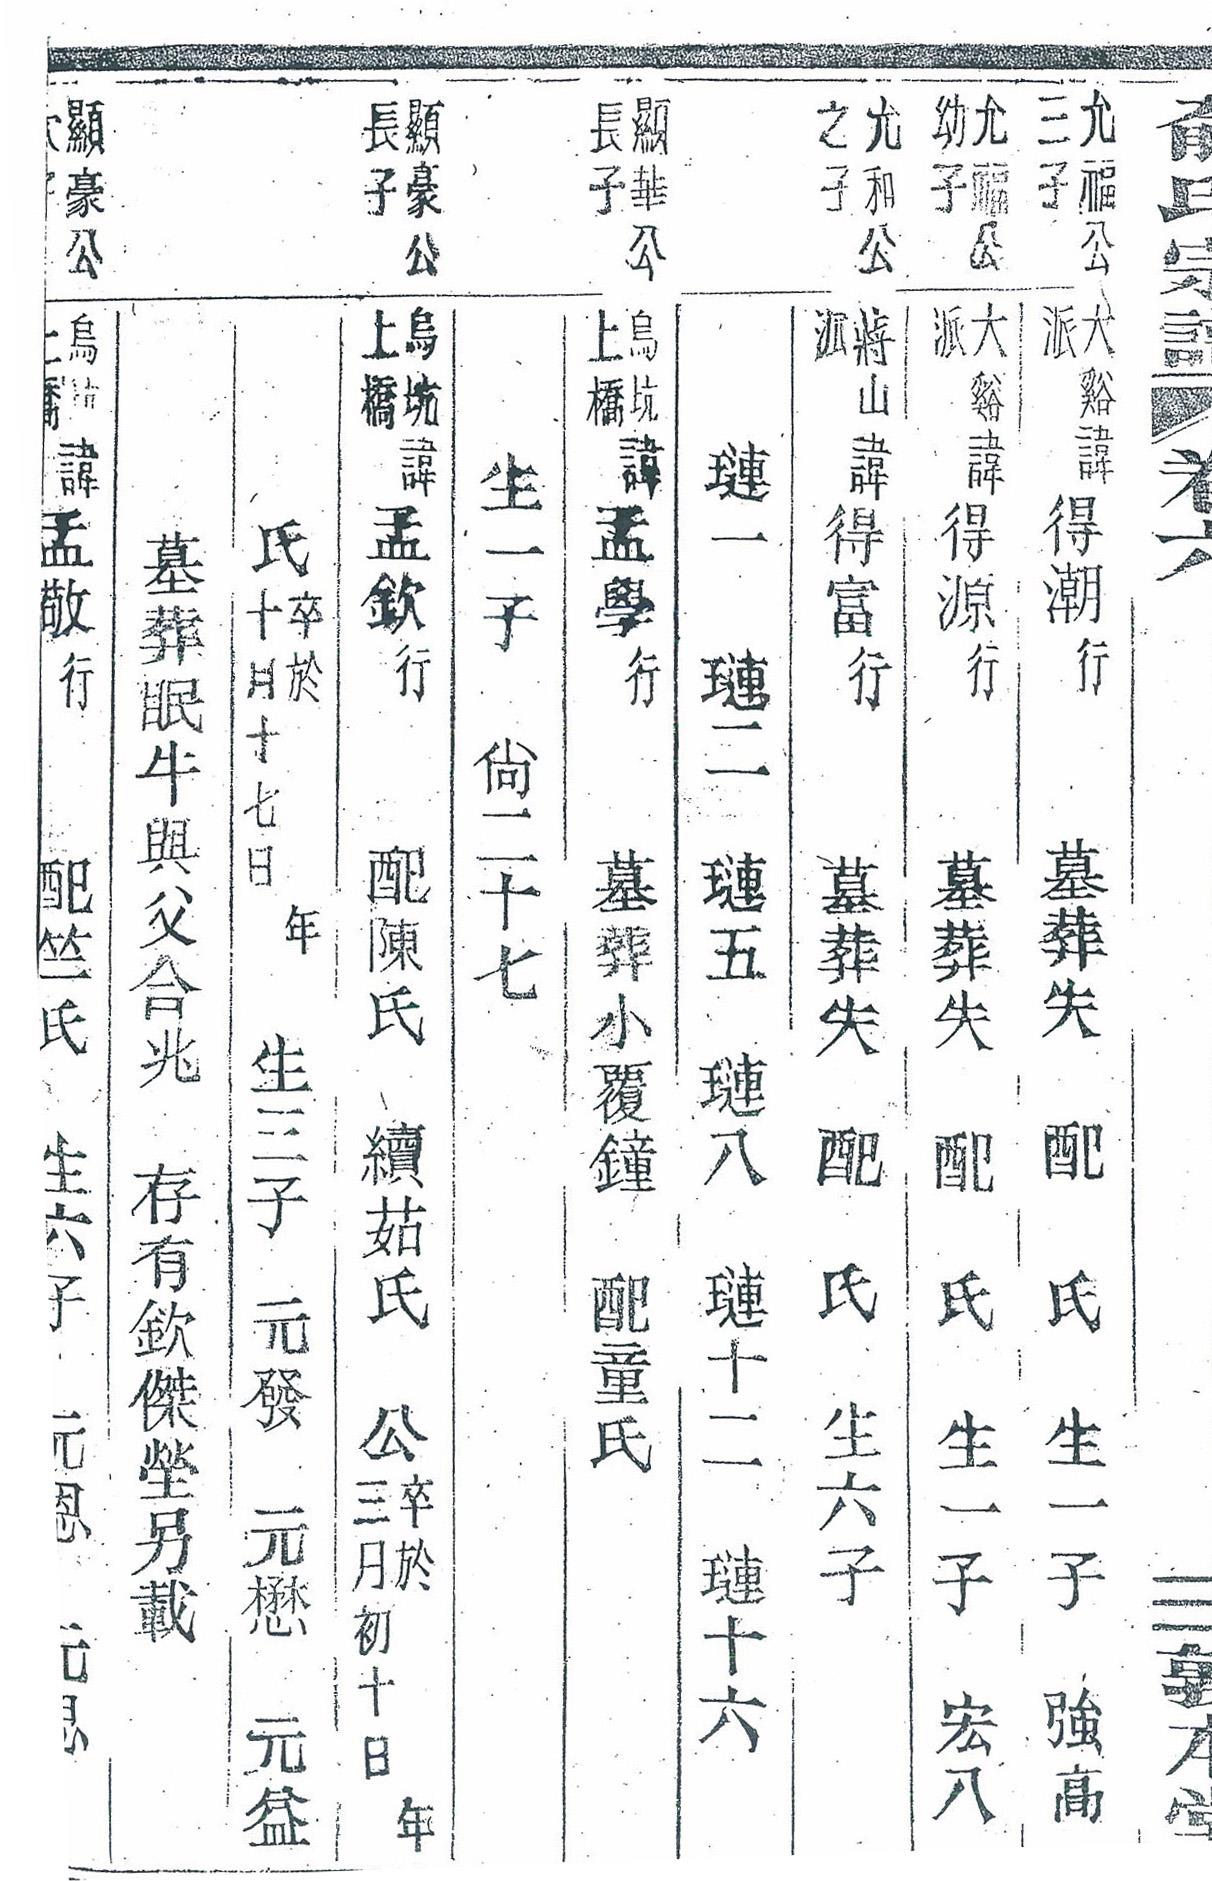 俞氏宗譜 卷六 三 敦本堂
允福公三子 大谿派 諱得潮行 墓葬失 配 氏 生一子 強高
允福公幼子 大谿派 諱得源行 墓葬失 配 氏 生一子 宏八
允和公之子 蔣山派 諱得富行 墓葬失 配 氏 生六子
璉一 璉二 璉五 璉八 璉十二 璉十六
顯華公長子 烏坑上橋 諱孟學行 墓葬小覆鐘 配童氏
生一子 尙二十七
顯豪公長子 烏坑上橋 諱孟欽行 配陳氏 續茹氏 公卒於 年三月初十日
氏卒於 年十月十七日 生三子 元發 元懋 元益
墓葬眠牛與父合兆 存有欽傑塋另載
顯豪公次子 烏坑上橋 諱孟敬行 配竺氏 生六子 元恩 元